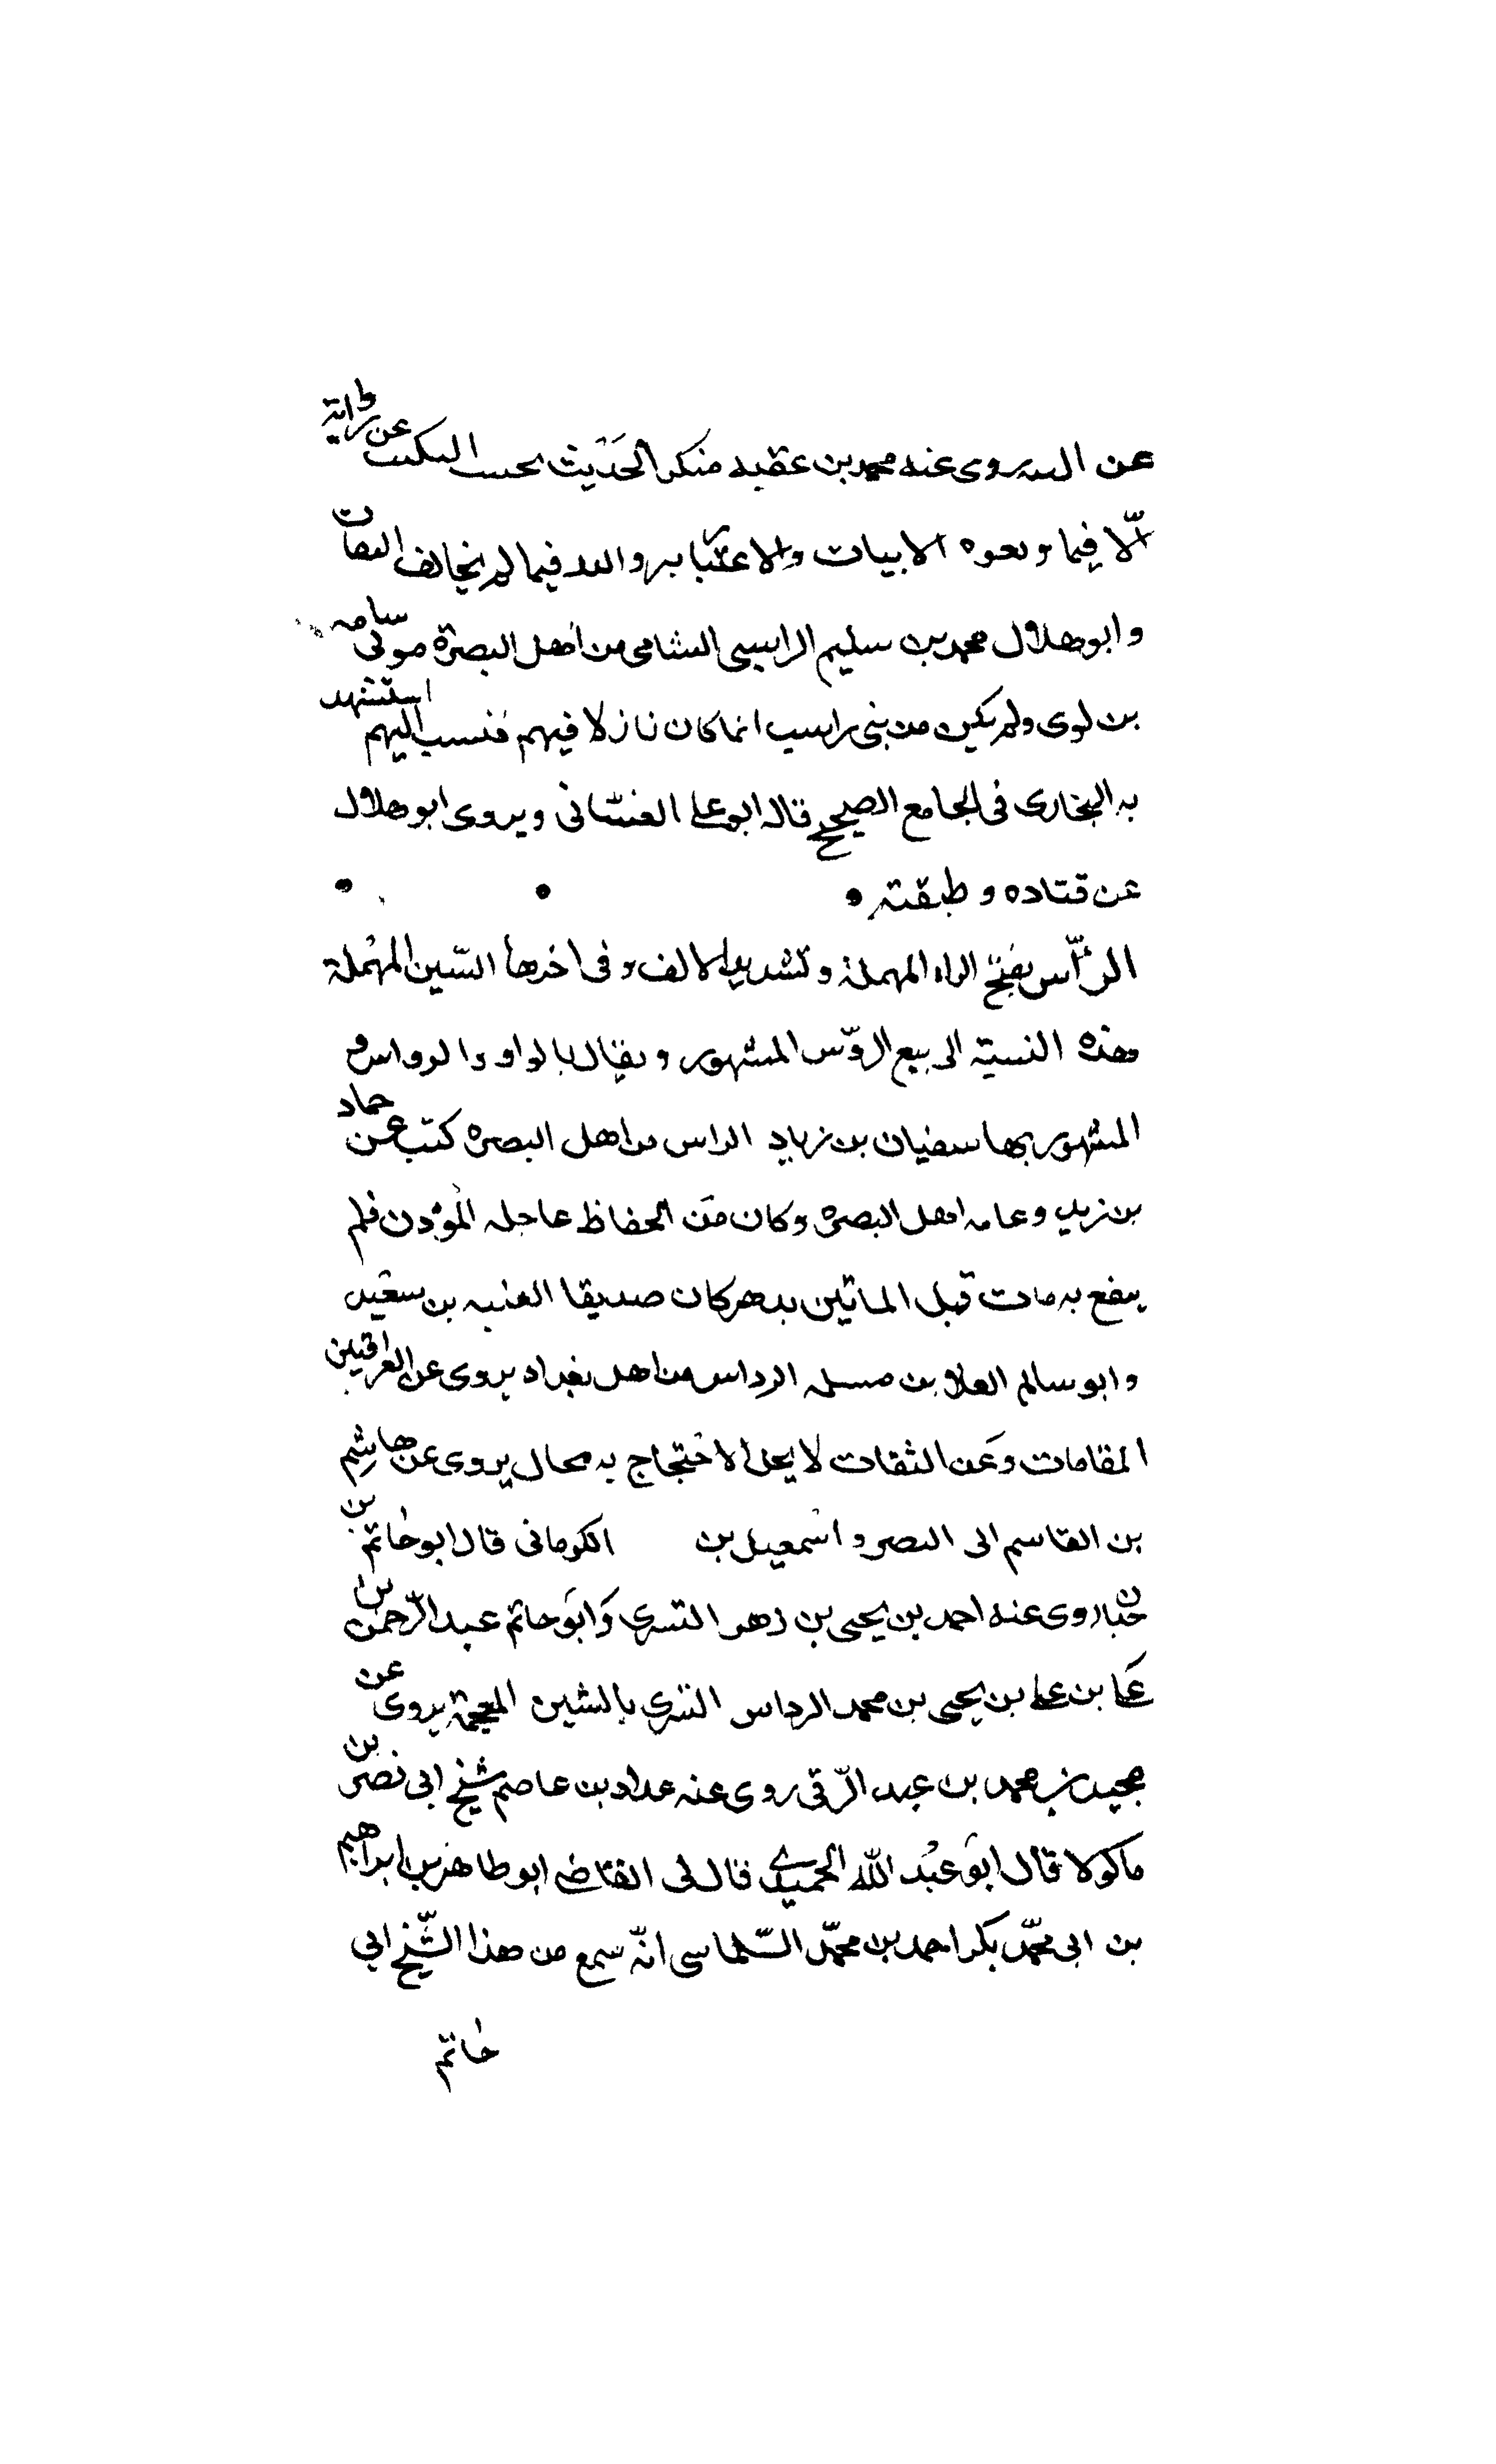 عن الس روى عنه محمد بن عقبه منكر الحديث يحب التنكب عن روايته
الّا فيما وبعوه الا بيات والاعتبار بروا لله فيما لم يخالف الثقات
وابو هلال محمد بن سليم الراسبى الشامى من اهل البصرة مولى سامه
بن لوى ولم يكن من بنى راسب انما كان نازلا فيهم فنسب اليهم استشهد
به البخارى فى الجامع الصحيح قاله ابو على الغسّانى ويروى ابو هلال
عن قتاده وطبقته
الرءّاس بفتح الراء المهملة وتشديد الالف وفى اخرها السّين المهملة
هذه النسبة الى بيع الروّس المشهور ويقال بالواو والرواس و
المشهور بها سفيان بن زياد الراس من اهل البصره كتب عن حماد
بن زيد وعامه اهل البصرة وكان من الحفاظ عاجله الموت فلم
ينفع به مات قبل الماتين بدهر كان صديقا لعنبه بن سعيد
وابو سالم العلا بن مسلمه الرداس من اهل بغداد يروى عن العراقيين
المقامات وعن الثقات لا يحل الاحتجاج به بحال يروى عن هاشم
بن القاسم ابى النصر واسمعيل بن الكرمانى قال ابو حاتم بن
حبان روى عنه احمد بن يحيى بن زهير التسرى وابو حاتم عبد الرّحمن بن
على بن على بن يحيى بن محمد الرداس التسرى بالشين المعجمة يروى عن
مجيد بن محمد بن عبد الرّقى روى عنه عداد بن عاصم شيخ ابى نصر بن
ماكولا قال ابو عبد الله الحميدي قال لى القاضى ابو طاهر بن ابراهيم
بن ابى محمّد بكر احمد بن محمّد السّلماسى انّه سمع من هذا الشّيخ ابي
حاتم